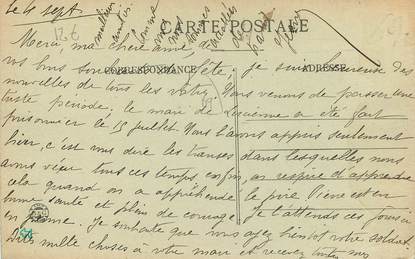 le 4 sept.
CARTE POSTALE
CORRESPONDANCE
ADRESSE
Merci, ma chère amie de
vos bons souhaits de fête; je suis heureuse des
nouvelles de tous les vôtres. Nous venons de passer une
triste période, le mari de a été fait
prisonnier le 15 juillet. Nous l'avons appris seulement
hier, c'est vous dire les transes dans lesquelles nous
avons vécu tous ces temps enfin, on respire d'apprendre
cela quand on a appréhendé le pire. est en
bonne santé et plein de courage. Je l'attends ces jours-ci
en perme. Je souhaite que vous ayez bientôt votre soldat.
Dites mille choses à votre mari et recevez toutes mes
meilleures amitiés